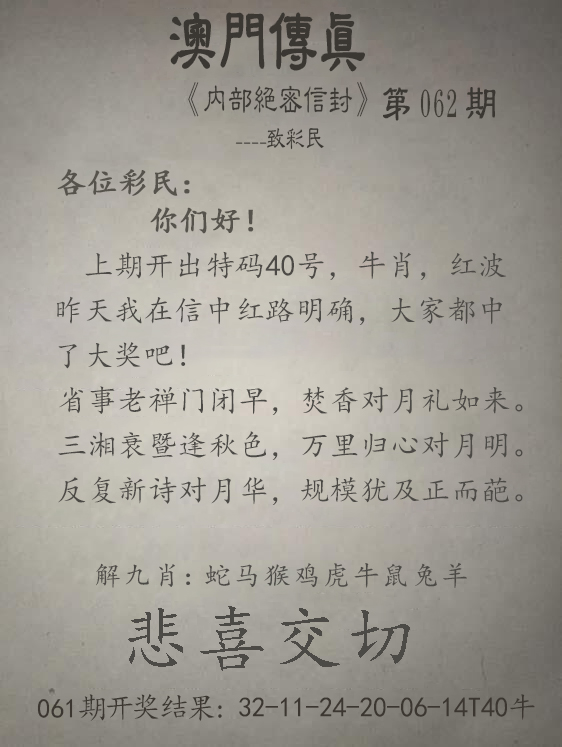 澳門傳眞
《内部絕密信封》第062期
----致彩民
各位彩民：
你们好！
上期开出特码40号，牛肖，红波
昨天我在信中红路明确，大家都中
了大奖吧！
省事老禅门闭早，焚香对月礼如来。
三湘衰暨逢秋色，万里归心对月明。
反复新诗对月华，规模犹及正而葩。
解九肖：蛇马猴鸡虎牛鼠兔羊
悲喜交切
061期开奖结果：32-11-24-20-06-14T40牛